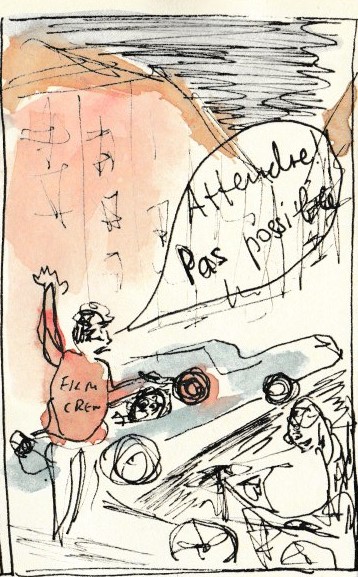 Attendre!
Pas possible
FILM
CREW